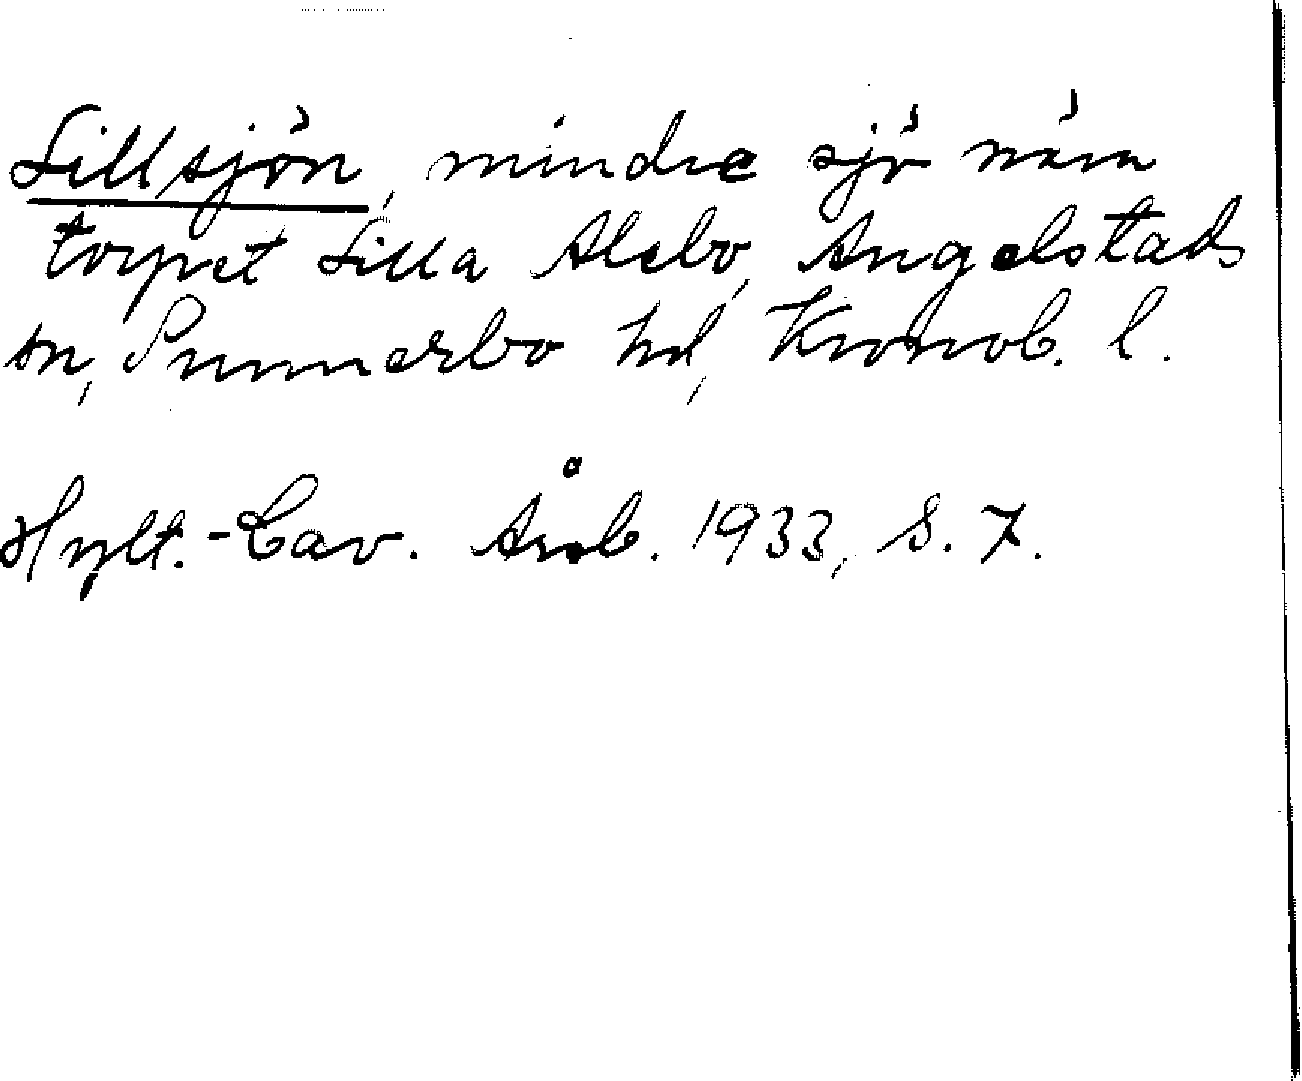 Lillsjön, mindre sjö nära
torpet Lilla Alebo, Angelstads
sn, Sunnerbo hd, Kronob. l.
Hylt.-Cav. Årsb. 1933, S. 7.